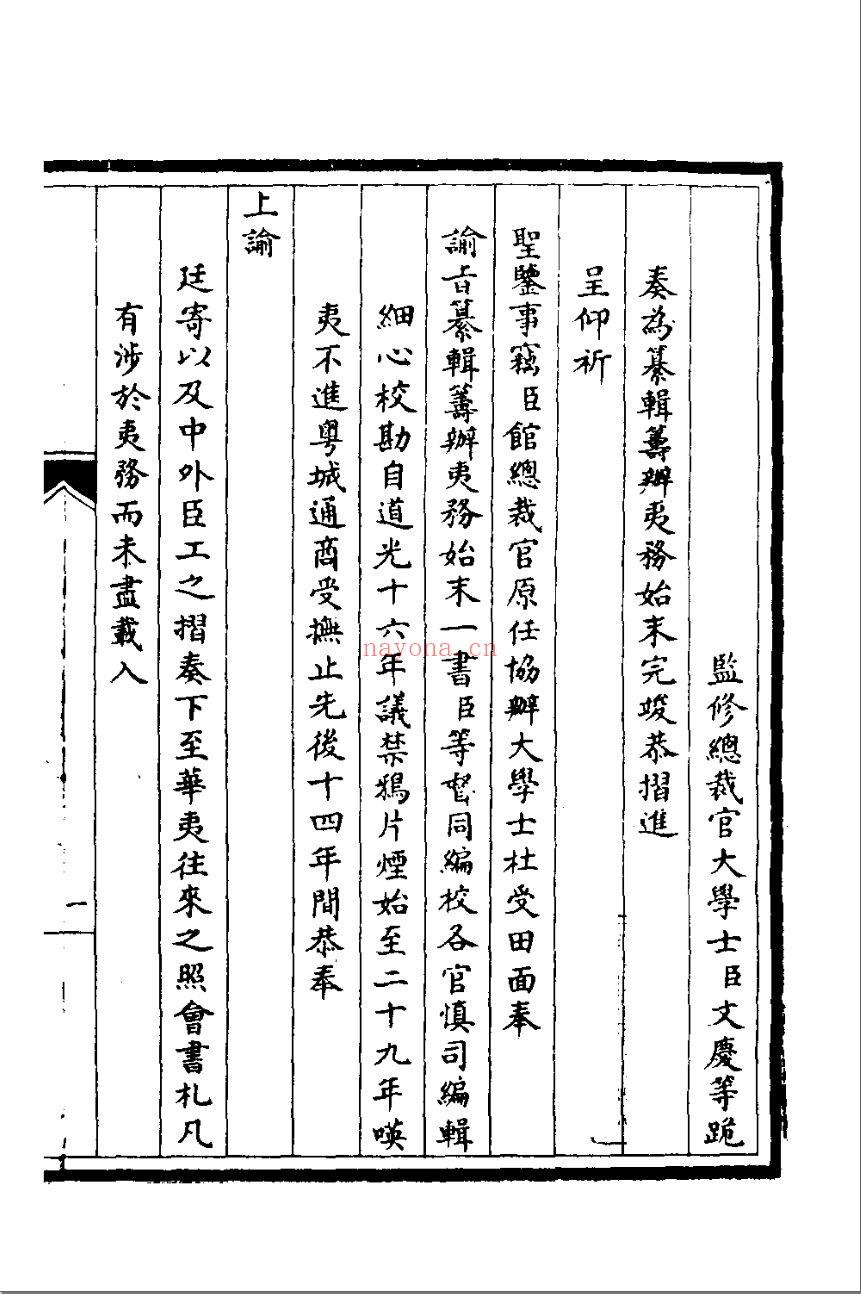 監修總裁官大學士臣文慶等跪
奏為纂輯籌辦夷務始末完竣恭摺進
呈仰祈
聖鑒事竊臣館總裁官原任協辦大學士杜受田面奉
諭旨纂輯籌辦夷務始末一書臣等督同編校各官慎司編輯
細心校勘自道光十六年議禁鴉片煙始至二十九年㗲
夷不進粵城通商受撫止先後十四年間恭奉
上諭
廷寄以及中外臣工之摺奏下至華夷往來之照會書札凡
有涉於夷務而未盡載入
一
nayona.cn